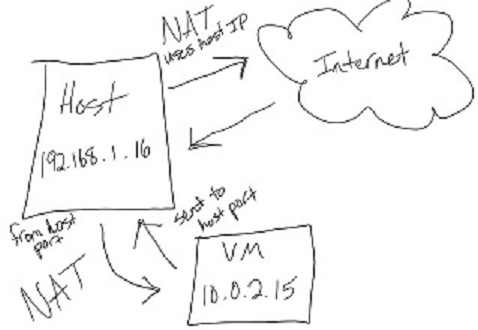 NAT
uses host IP
Internet
Host
192.168.1.16
from host
port
sent to
host port
NAT
VM
10.0.2.15